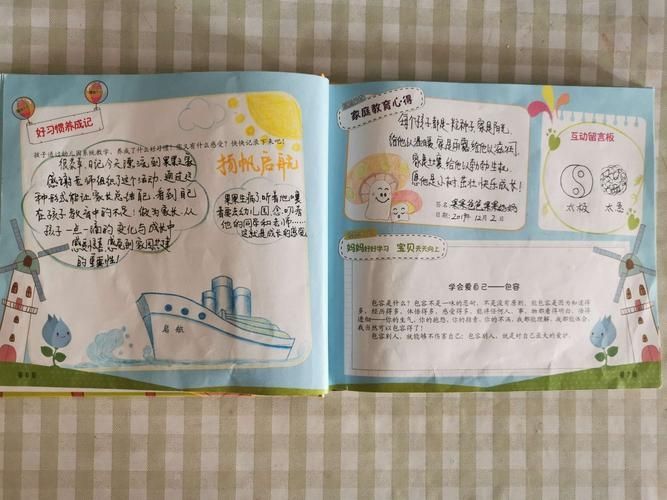 好习惯养成记
孩子通过幼儿园系统教学，养成了什么好习惯？您又有什么感受？快快记录下来吧！
很荣幸，日记今天漂流到果果家
感谢老师组织了这个活动，通过这
种形式能让家长总结自己，看到自己
在孩子教育中的不足；做为家长，从
孩子一点一滴的变化与成长中
感到惊喜，感受到家园共建
的重要性！
扬帆启航
果果生病了，听着他嚷
着要去幼儿园，念叨着
他的同学和老师……
这就是成长的感受
启航
第6页
家庭教育心得
每个孩子都是一粒种子，家是阳光，
给他以温暖，家是雨露，给他以滋润，
家是土壤，给他以勃勃生机，
愿他是小树，茁壮快乐成长！
签名：果果爸爸果果妈妈
日期：2019年12月2日
互动留言板
太极
太急
妈妈好好学习 宝贝天天向上
学会爱自己——包容
包容是什么？包容不是一味的忍耐，不是没有原则，能包容是因为知道得
多，经历得多，体悟得多，感受得多，能将任何人、事、物都看得明白、悟得
透彻——你的生气，你的抱怨，你的指责，你的不满，我都能理解，我都能体会，
我当然可以包容得了！
包容别人，就能够不伤害自己；包容别人，就是对自己最大的爱护。
第7页